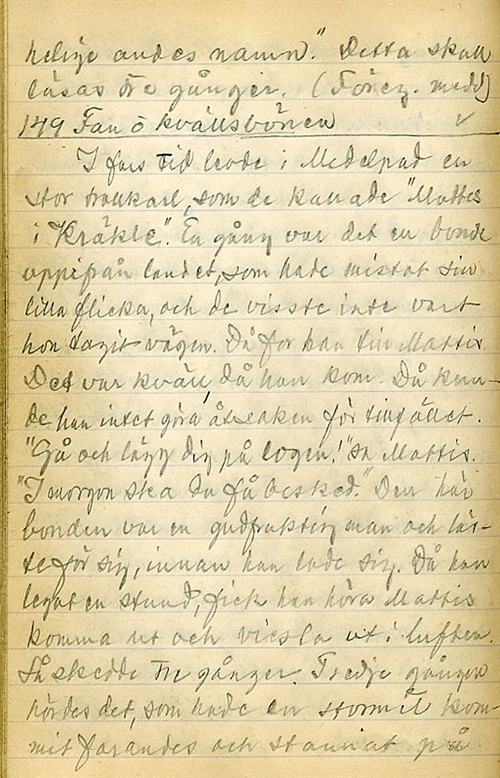 helige andes namn." Detta skall
läsas tre gånger. (Föreg. medd)
149 Fan o kvällsbönen
I fars tid levde i Medelpad en
stor trollkarl, som de kallade "Mattes
i Kräkle". En gång var det en bonde
uppifrån landet, som hade mistat sin
lilla flicka, och de visste inte vart
hon tagit vägen. Då for han till Mattis
Det var kväll, då han kom. Då kun-
de han intet göra åt saken för tillfället.
"Gå och lägg dig på logen!" sa Mattis.
"I morgon ska du få besked." Den här
bonden var en gudfruktig man och läs-
te för sig, innan han lade sig. Då han
legat en stund, fick han höra Mattis
komma ut och vissla ut i luften.
Så skedde tre gånger. Tredje gången
hördes det, som hade en stormil kom-
mit farandes och stannat på